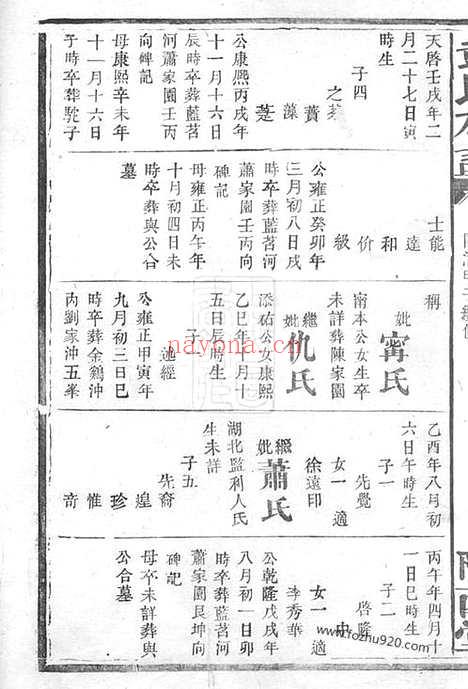 天啓壬戌年二
月二十七日寅
時生
子四
之
蕡
藻
公康熙丙戌年
十一月十六日
辰時卒葬藍茗
河蕭家園壬丙
向碑記
母康熙辛未年
十一月十六日
子時卒葬駝子
士能
達
和
价
級
公雍正癸卯年
三月初八日戌
時卒葬藍茗河
蕭家園壬丙向
碑記
母雍正丙午年
十月初四日未
時卒葬與公合
墓
稱
妣甯氏
南本公女生卒
未詳葬陳家園
繼妣仇氏
添佑公女康熙
乙巳年八月十
五日辰時生
子一
述經
公雍正甲寅年
九月初三日巳
時卒葬金鷄沖
内劉家沖五峯
乙酉年八月初
六日午時生
子一
先覺
女一適
徐遠印
繼妣蕭氏
湖北監利人氏
生未詳
子五
先裔
遑
珍
惟
奇
丙午年四月十
一日巳時生
子二
啓隆
忠
女一適
李秀華
公乾隆戊戌年
八月初一日卯
時卒葬藍茗河
蕭家園艮坤向
碑記
母卒未詳葬與
公合墓
nayona.cn
www.fozhu920.com